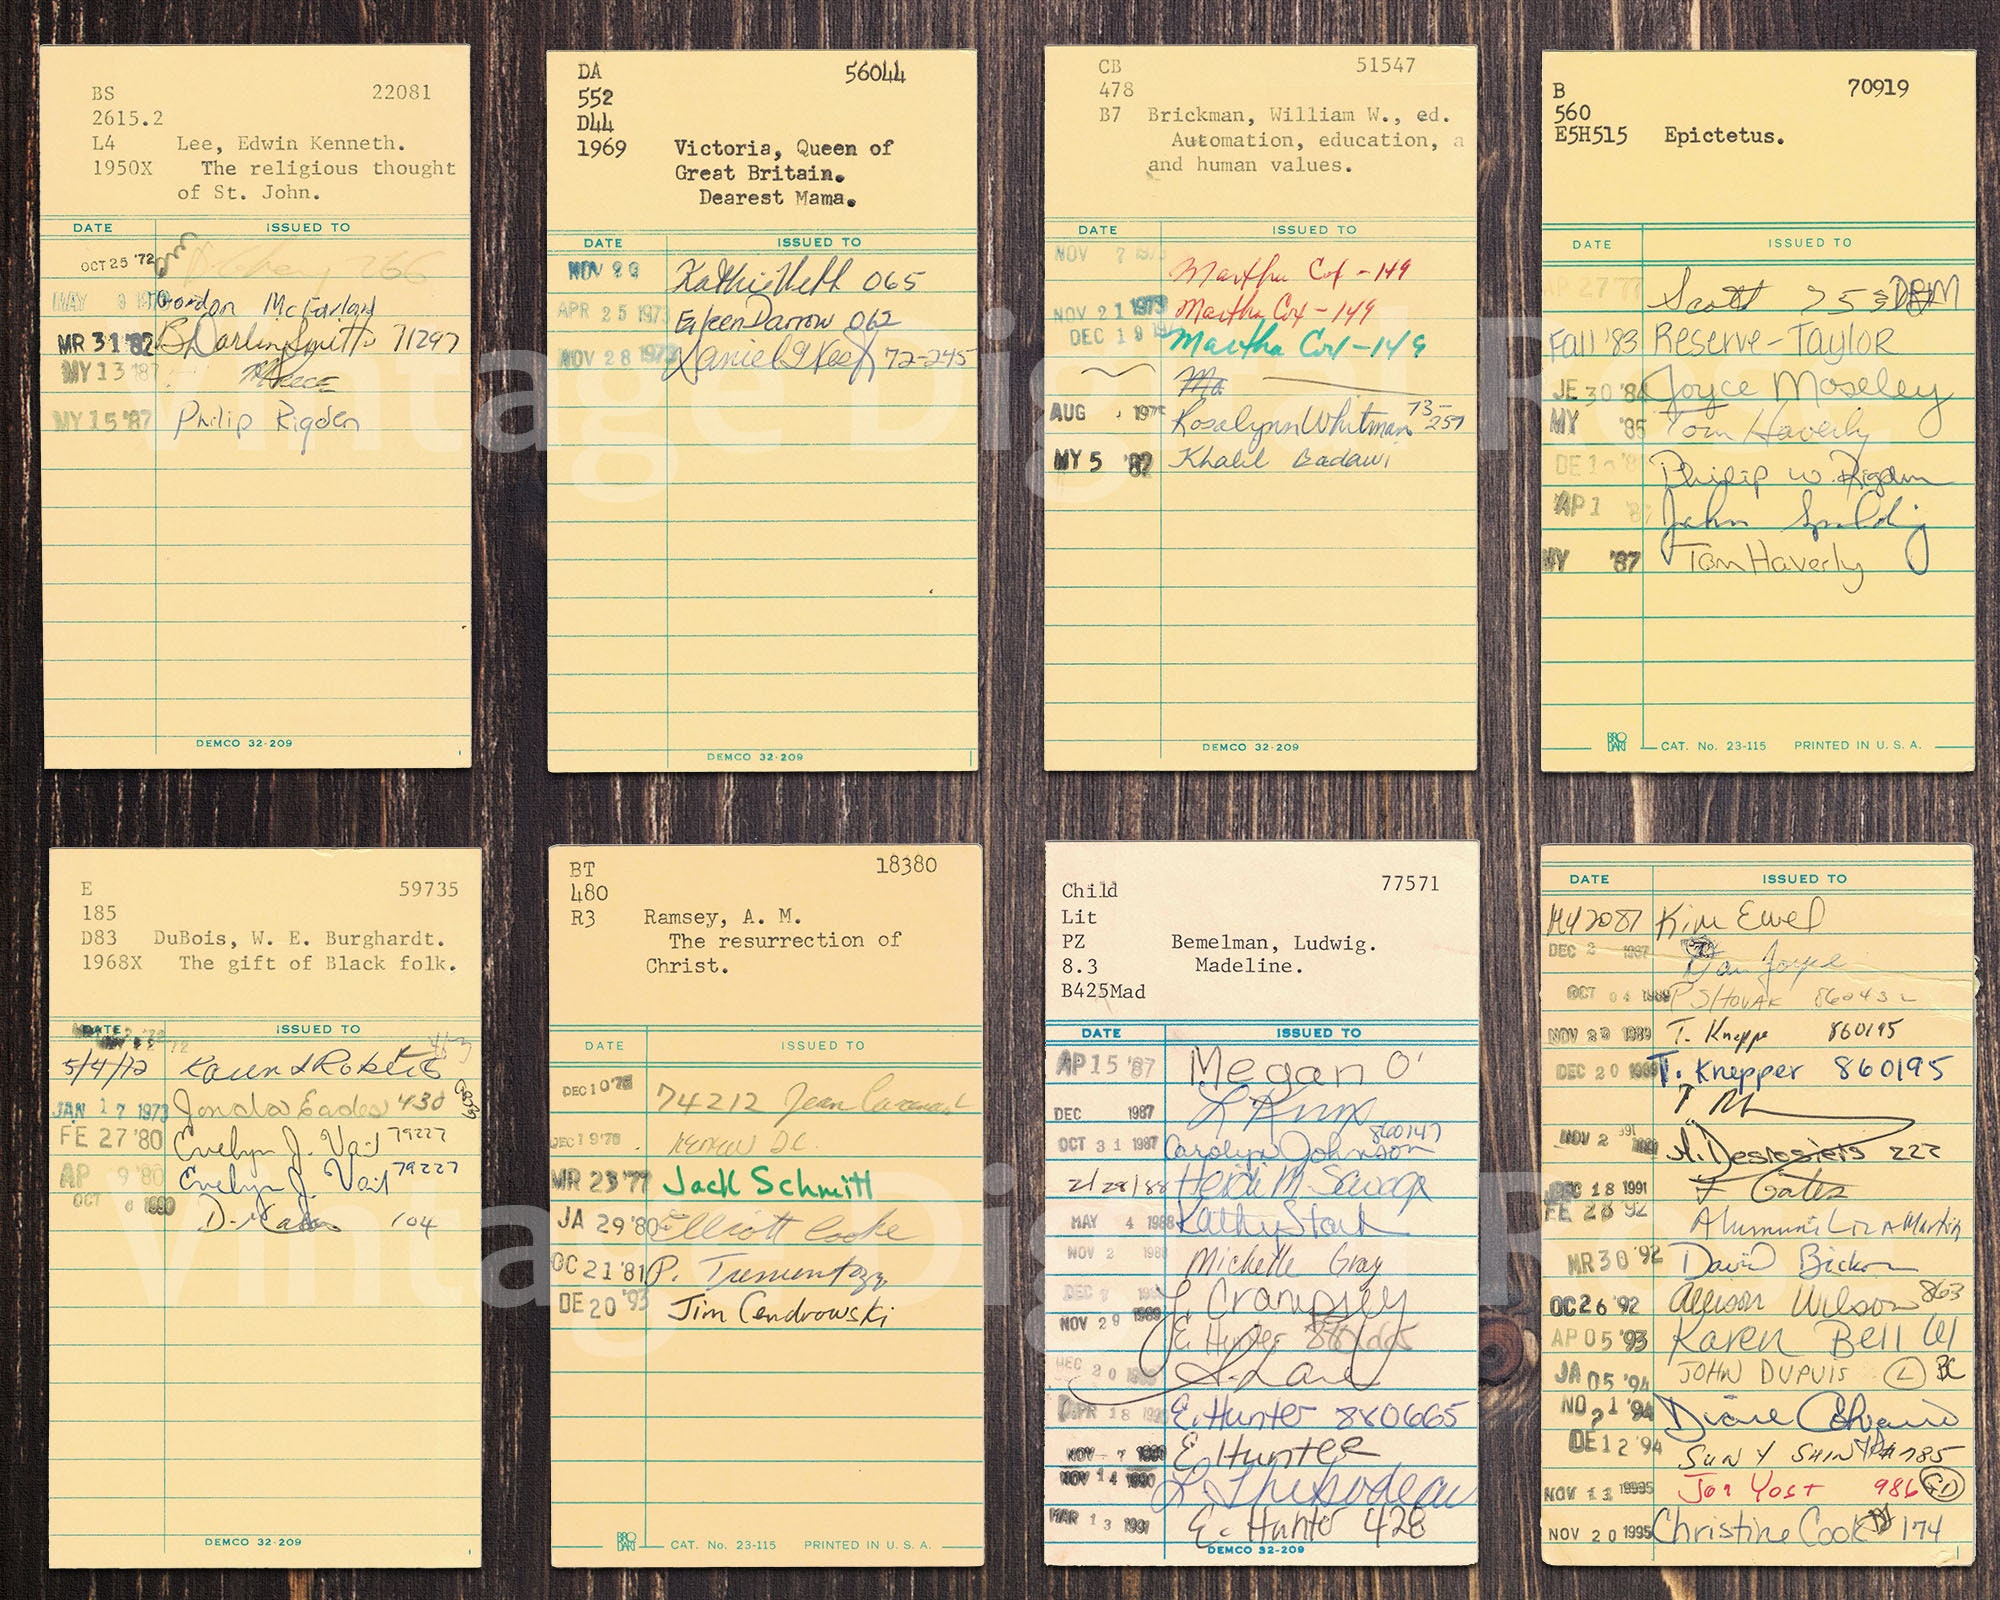 BS 22081
2615.2
L4 Lee, Edwin Kenneth.
1950X The religious thought
of St. John.
DATE ISSUED TO
OCT 25 '72 266
MAY Gordon McFarland
MR 31 '82 B Darlin Smith 71297
MY 13 '87 Meece
MY 15 '87 Philip Rigden
DEMCO 32-209
DA 56044
552
D44
1969 Victoria, Queen of
Great Britain.
Dearest Mama.
DATE ISSUED TO
NOV 29 Kathie Webb 065
APR 25 1973 Eileen Darrow 062
NOV 28 1973 Daniel G 72-245
DEMCO 32-209
CB 51547
478
B7 Brickman, William W., ed.
Automation, education, a
and human values.
DATE ISSUED TO
NOV 7 1973 Martha Cox - 149
NOV 21 1973 Martha Cox - 149
DEC 19 Martha Cox - 149
Ma
AUG 197 Rosalynn Whitman 73-257
MY 5 '82 Khalil Badawi
DEMCO 32-209
B 70919
560
E5H515 Epictetus.
DATE ISSUED TO
AP 27 77 Scott 753
Fall '83 Reserve-Taylor
JE 30 '84 Joyce Moseley
MY '85 Tom Haverly
DE Philip W. Rigden
AP 1 John Spalding
MY '87 Tom Haverly
BRO DART CAT. No. 23-115 PRINTED IN U. S. A.
E 59735
185
D83 DuBois, W. E. Burghardt.
1968X The gift of Black folk.
DATE ISSUED TO
5/4/72 Karen L Roberts
JAN 17 1973 Jonda Eades 430
FE 27 '80 Evelyn J. Vail 79227
AP 9 '80 Evelyn J. Vail 79227
OCT 6 1980 104
DEMCO 32-209
BT 18380
480
R3 Ramsey, A. M.
The resurrection of
Christ.
DATE ISSUED TO
DEC 10 '76 74212 Jean
DEC 19 '76 Renew DC
MR 23 '77 Jack Schmitt
JA 29 '80 Elliott Cooke
OC 21 '81 P. Trementozzi
DE 20 '93 Jim Cendrowski
BRO DART CAT. No. 23-115 PRINTED IN U. S. A.
Child 77571
Lit
PZ Bemelman, Ludwig.
8.3 Madeline.
B425Mad
DATE ISSUED TO
AP 15 '87 Megan O'
DEC 1987 L
OCT 31 1987 Carolyn Johnson 860147
2/28/88 Heidi M. Savage
MAY 4 1988 Kathy Stark
NOV 2 1988 Michelle Gray
DEC 7 L. Crampsey
NOV 29 1989 E. Hunter 880665
DEC 20 S. Lane
APR 18 E. Hunter 880665
NOV - 7 1990 E Hunter
NOV 14 1990 L. Thibodeau
MAR 13 1991 E. Hunter 428
DEMCO 32-209
DATE ISSUED TO
MY 2087 Kim Ewel
DEC 2 1987 Dan Joyce
OCT 04 1989 P SHOVAK 860432
NOV 29 1989 T. Kneppe 860195
DEC 20 1989 T. Knepper 860195
NOV 2 1991 Desrosiers 222
DEC 18 1991 F Gates
FE 28 '92 Alumni Liz A Martin
MR 30 '92 David Bickom
OC 26 '92 Allison Wilson 863
AP 05 '93 Karen Bell
JA 05 '94 JOHN DUPUIS
NO 21 '94 Diane
DE 12 '94 SUNY 785
NOV 13 1995 Jon Yost 986
NOV 20 1995 Christine Cook 174
Vintage Digital Re
Vintage Digital Re